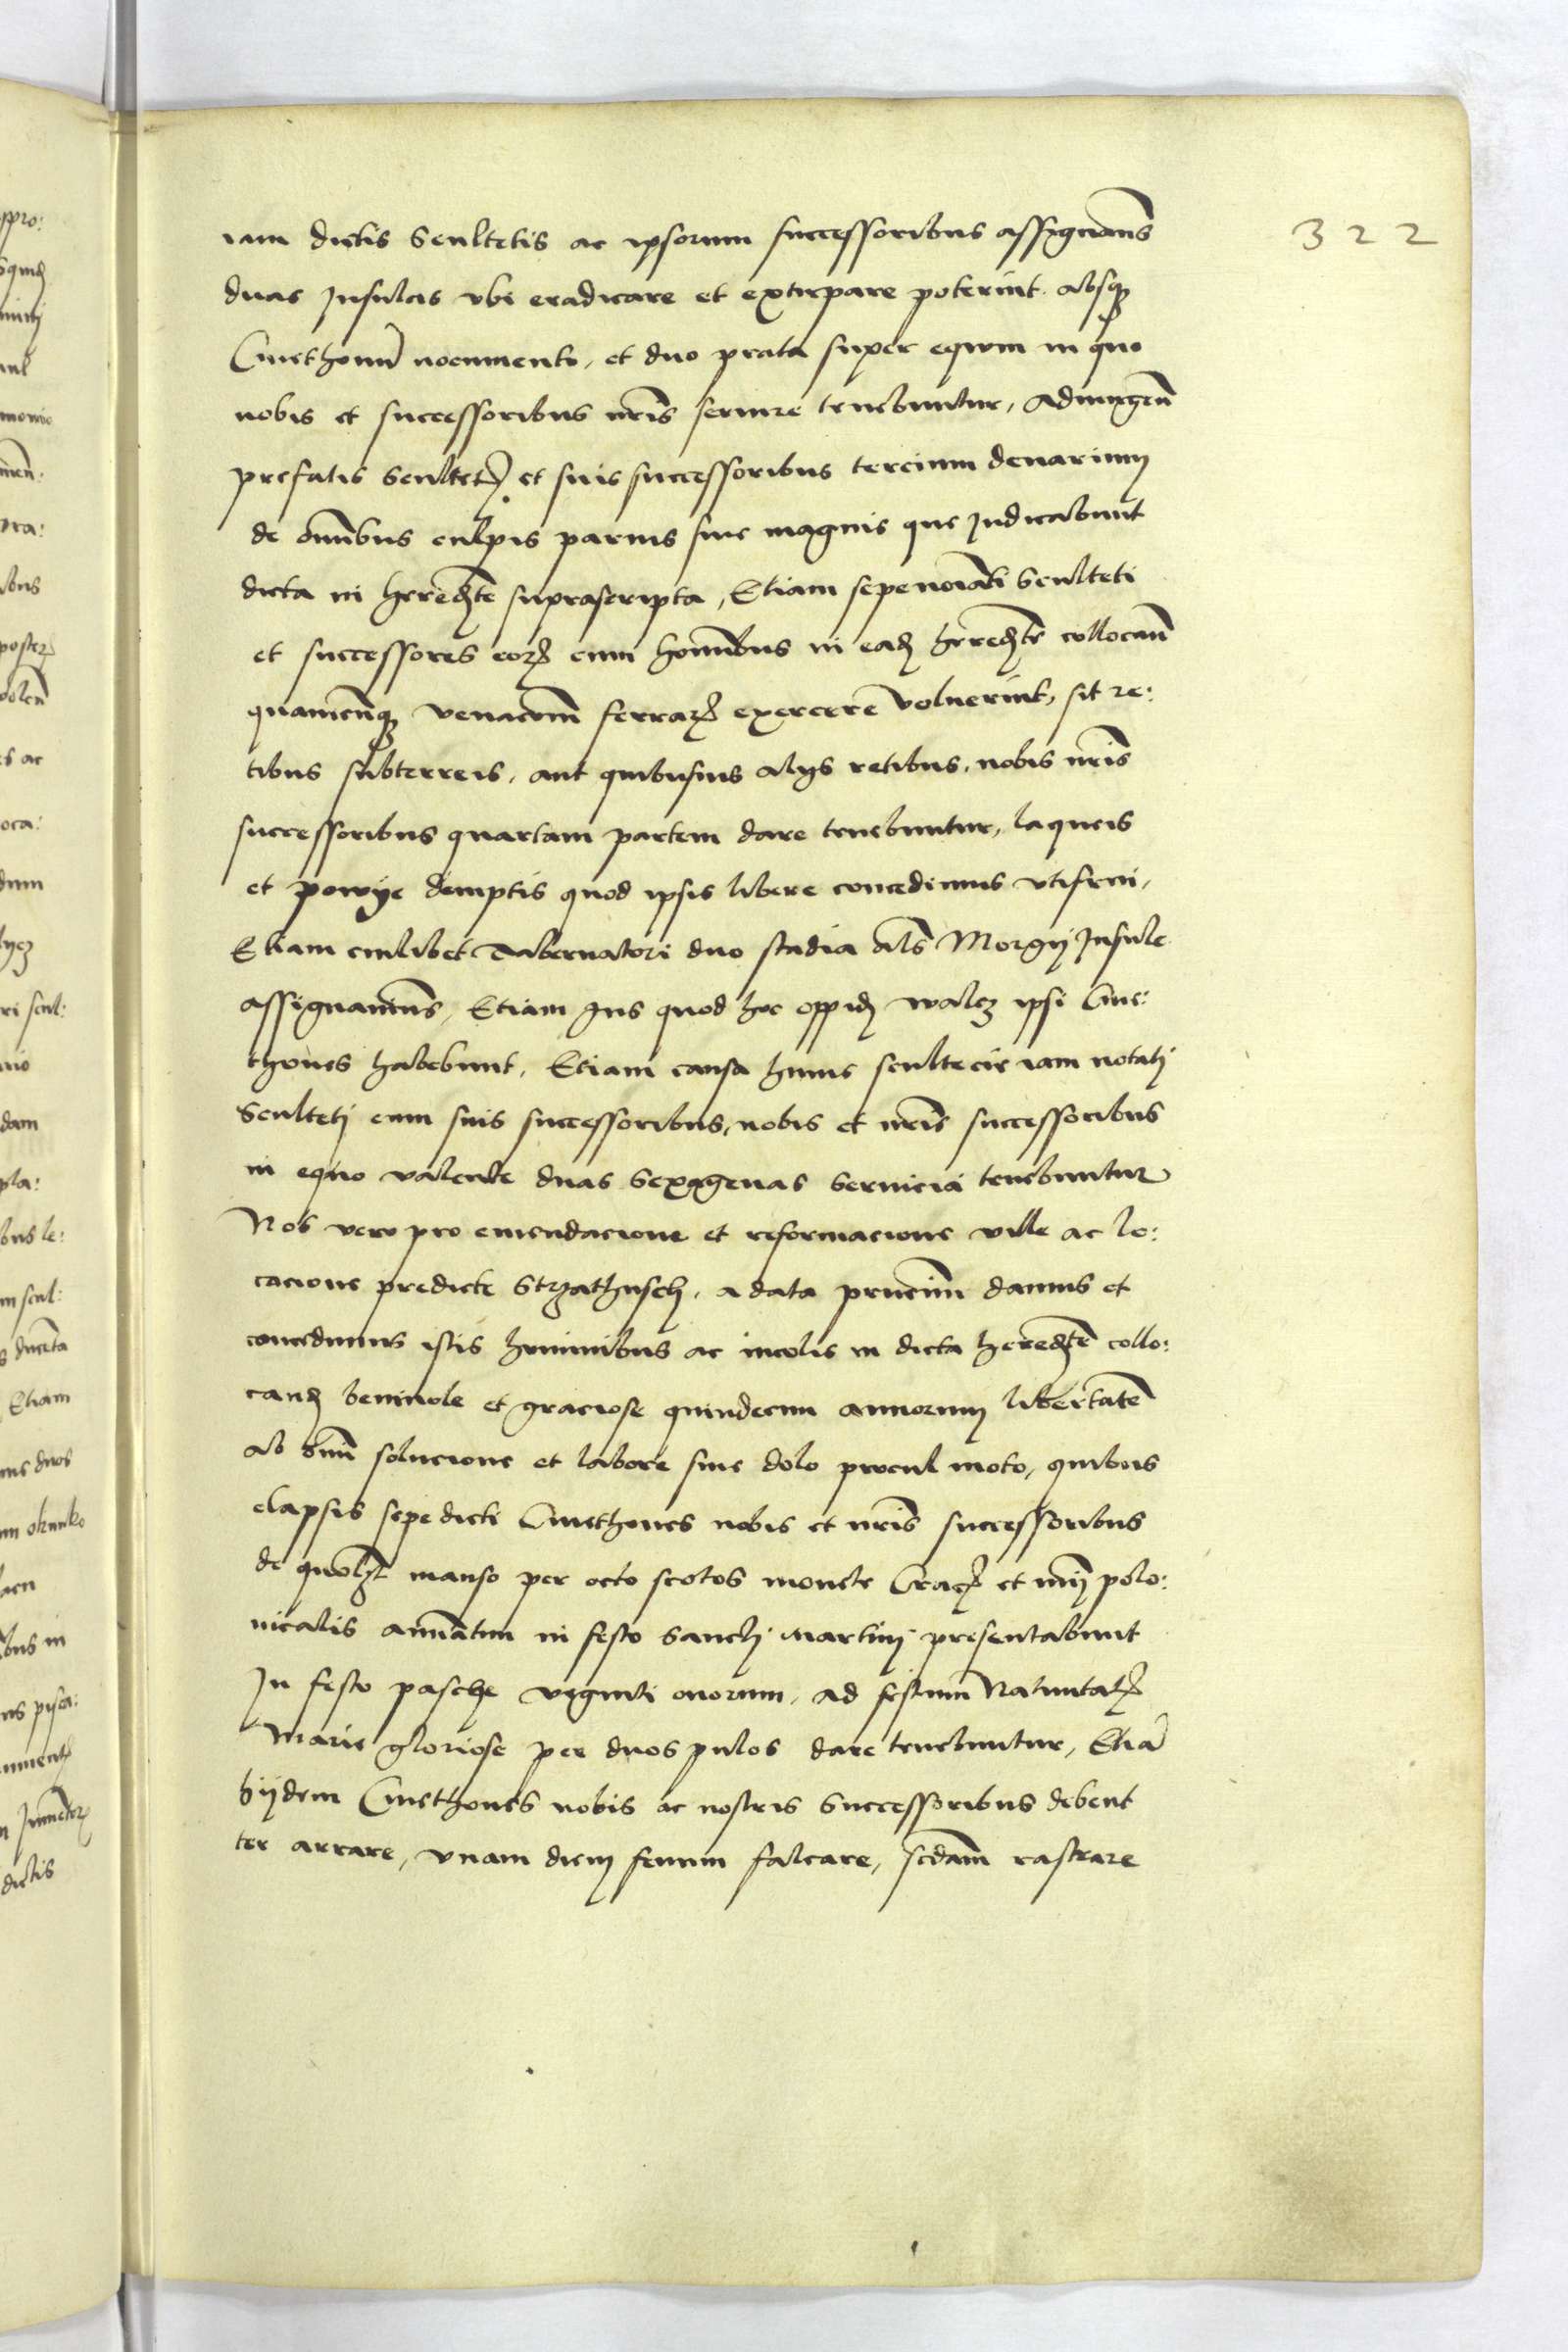 322
iam dictis Scultetis ac ipsorum successoribus assignams
duas Insulas vbi eradicare et extirpare poterint absq
Cmethonu nocumento, et duo prata super equm in quo
nobis et successoribus nris seruire tenebuntur, Adiungen
prefatis Scultet et suis successoribus tercium denarium
de omibus culpis paruis siue magnis que Judicabunt
dicta in heredte suprascripta, Etiam sepenoiati Sculteti
et successores eor cum hominibus in ead heredte collocan
quamcunq venacom ferrar exercere voluerint, sit re:
tibus subterreis, aut quibusuis alys retibus, nobis nris
successoribus quartam partem dare tenebuntur, laqueis
et powyе demptis quod ipsis libere concedimus vtifrui,
Etiam cuilibet Tabernatori duo stadia als Morgy Insule
assignamus, Etiam Ius quod hoc oppid walez ipsi Cme:
thones habebunt, Etiam causa huius scultecie iam notatj
Scultetj cum suis successoribus, nobis et nris successoribus
in equo valente duas sexagenas seruicia tenebuntur
Nos vero pro emendacione et reformacione ville ac lo:
cacione predicte Strzathusch, a data pncium damus et
concedimus istis hominibus ac incolis in dicta heredte collo:
cand beniuole et graciose quindecim annorum libertate
ab omi solucione et labore siue dolo procul moto, quibus
elapsis sepe dicti Cmethones nobis et nris successoribus
de quolzt manso per octo scotos monete Crac et nuj polo:
nicalis annatim in festo sanctj martinj presentabunt
In festo pasche viginti ouorum, ad festum Natiuitat
Marie gloriose per duos pulos dare tenebuntur, Etia
hijdem Cmethones nobis ac nostris successoribus debent
ter arrare, vnam diem fenum falcare, scdam rastrare